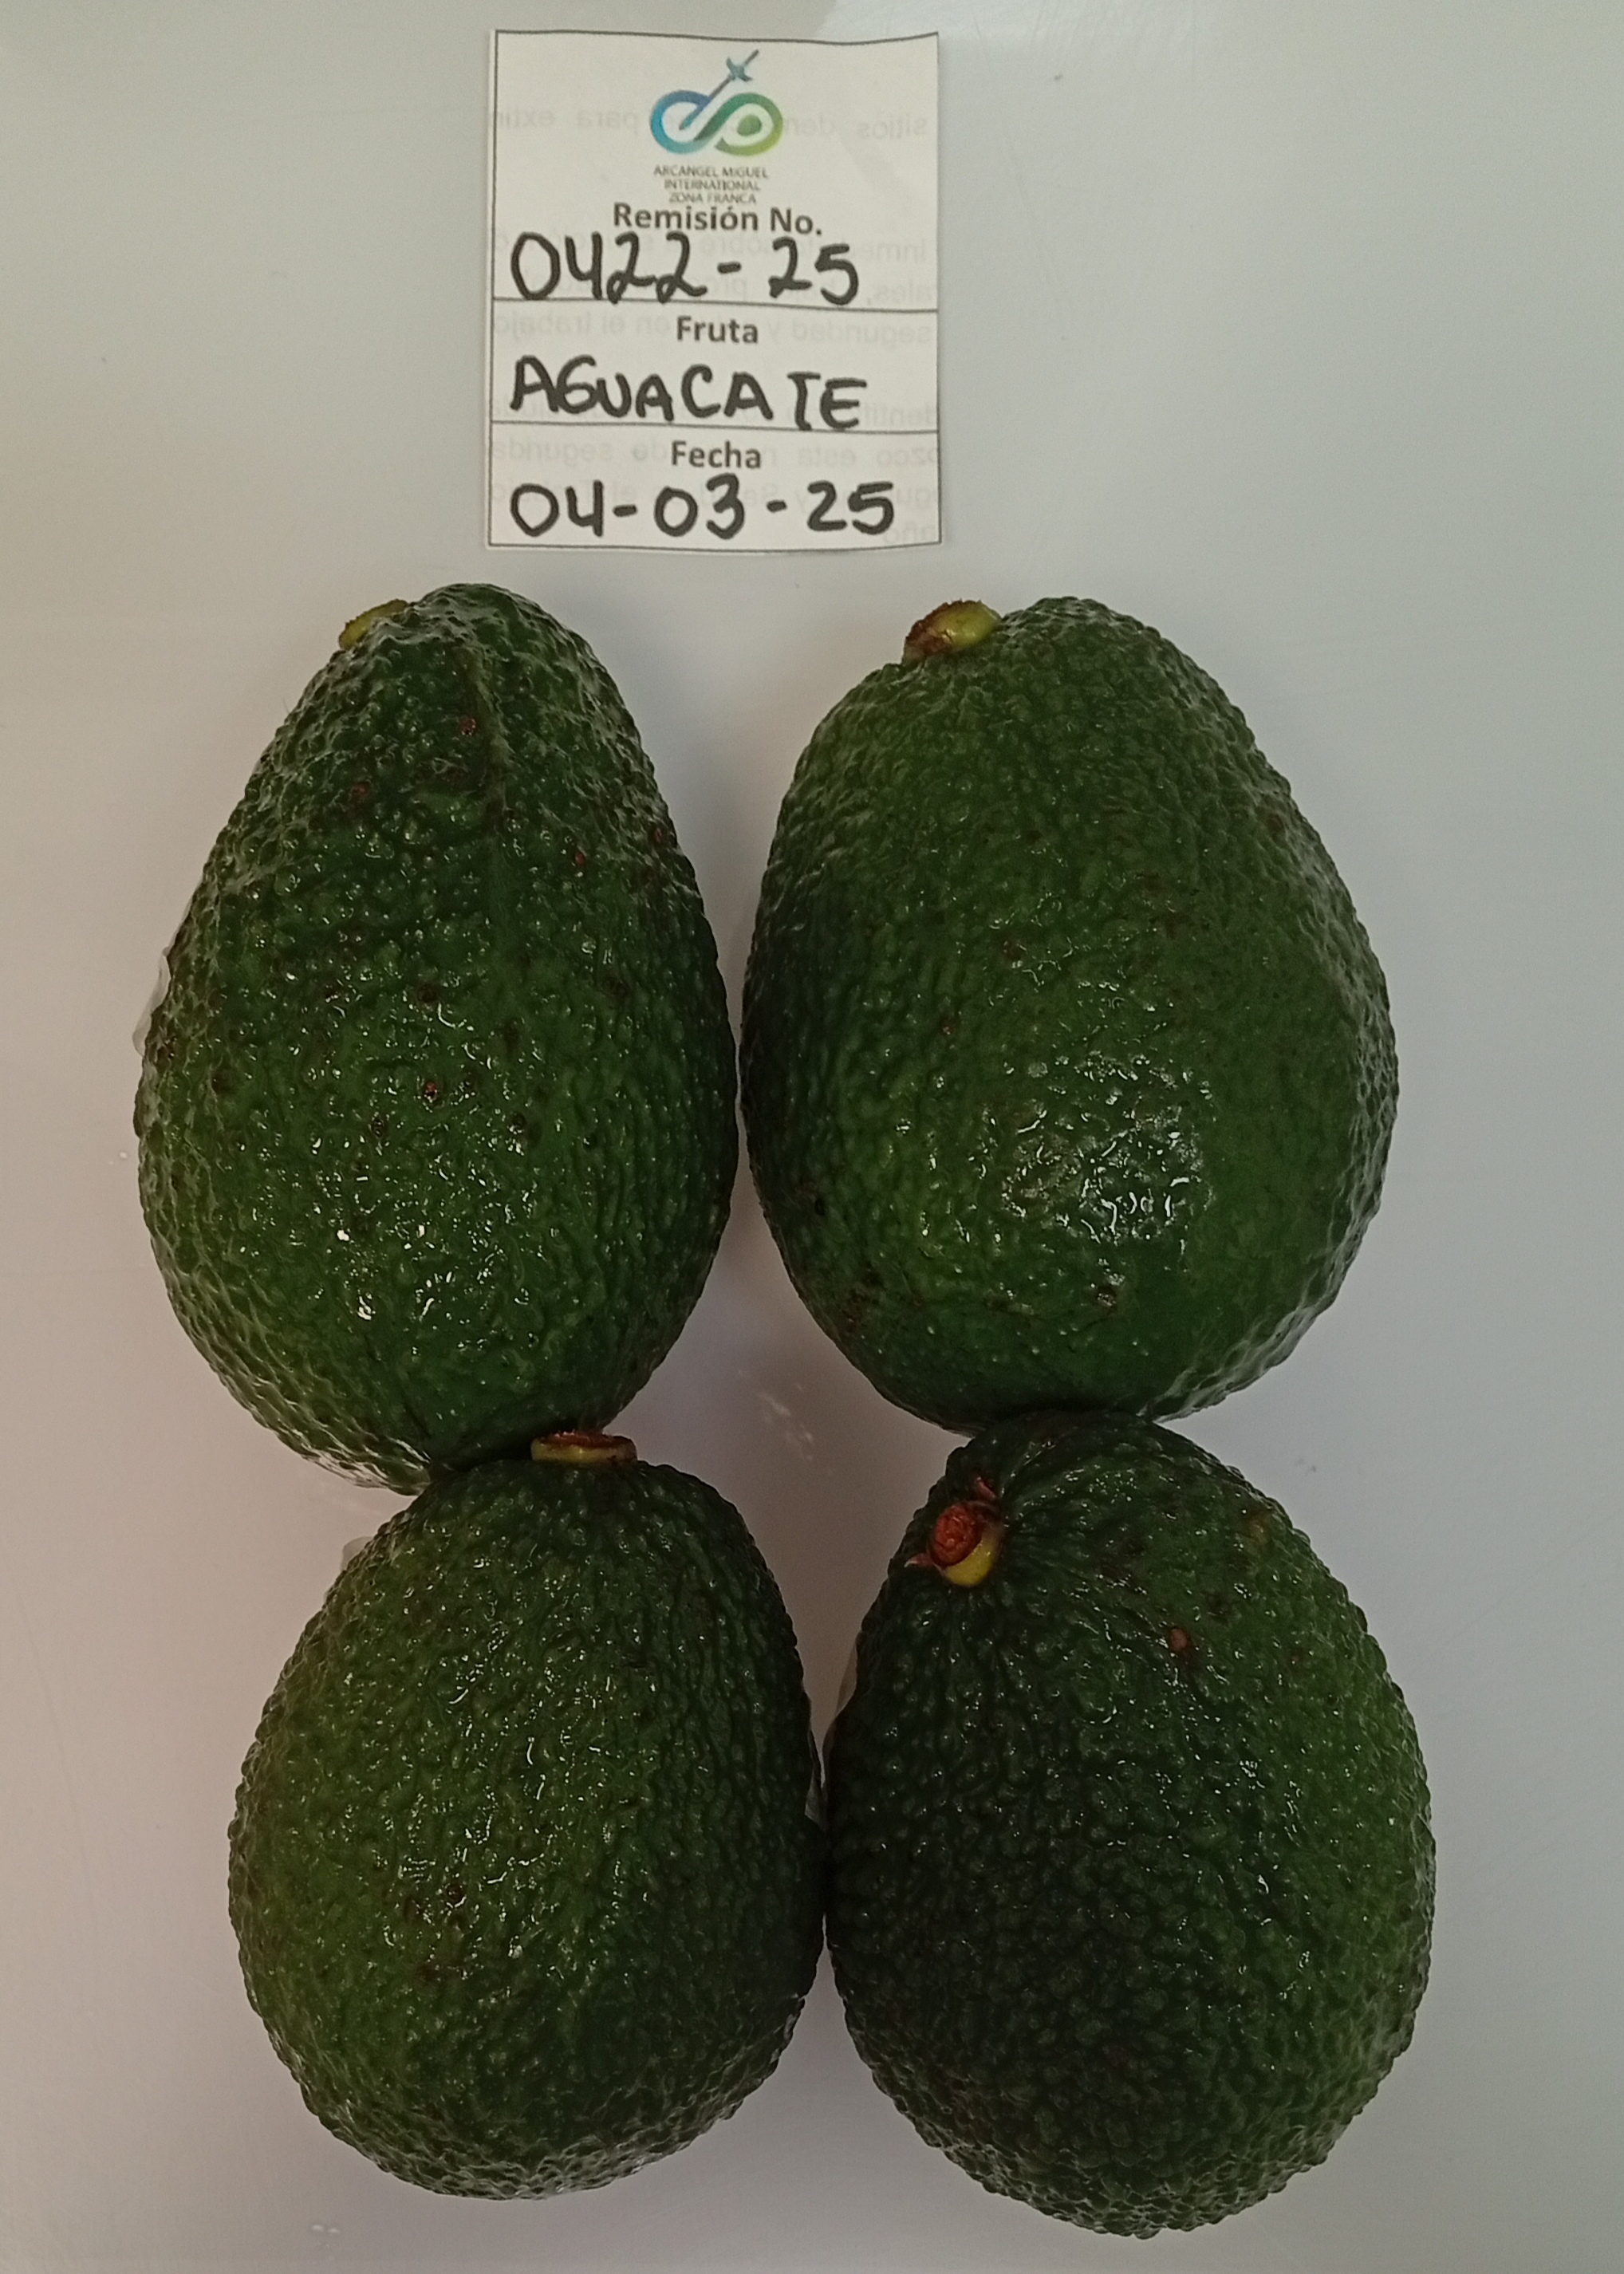 ARCANGEL MIGUEL
INTERNATIONAL
ZONA FRANCA
Remisión No.
0422-25
Fruta
AGUACATE
Fecha
04-03-25